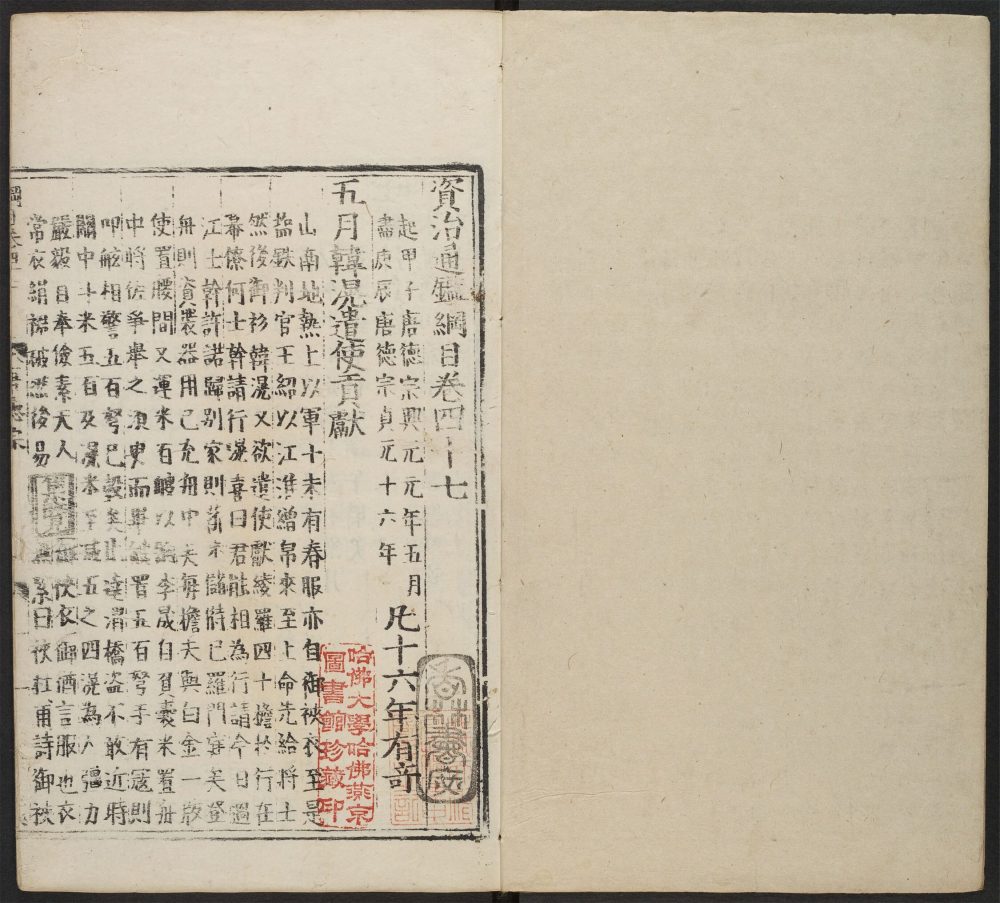 資治通鑑綱目卷四十七
起甲子唐德宗興元元年五月
盡庚辰唐德宗貞元十六年
凡十六年有奇
五月韓滉遣使貢獻
山南地熱上以軍士未有春服亦自御裌衣至是
鹽鐵判官王紹以江淮繒帛來至上命先給將士
然後御衫韓滉又欲遣使獻綾羅四十擔於行在
幕僚何士幹請行滉喜曰君能相為行請今日過
江士幹許諾歸別家則薪米儲偫已羅門庭矣登
舟則資裝器用已充舟中矣每擔夫與白金一版
使置腰間又運米百艘以餉李晟自負囊米置舟
中將佐爭舉之須臾而畢艘置五百弩手有寇則
叩舷相警五百弩已彀矣比達渭橋盜不敢近時
關中斗米五百及滉米至減五之四滉為人彊力
嚴毅自奉儉素夫人
常衣絹裙破然後易
裌衣御酒言服也衣
系曰裌杜甫詩御裌
哈佛大學哈佛燕京
圖書館珍藏印